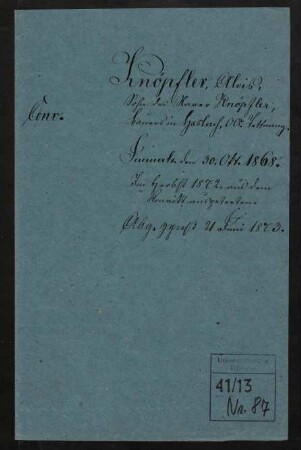 Knöpfler, Alois,
Sohn des Xaver Knöpfler,
Conv.
Bauers in Haslach, OA Tettnang.
Immatr. den 30. Okt. 1868.
Im Herbst 1872 aus dem
Konvikt ausgetreten.
Abg. 21 Juni 1873.
41/13
Nr. 87